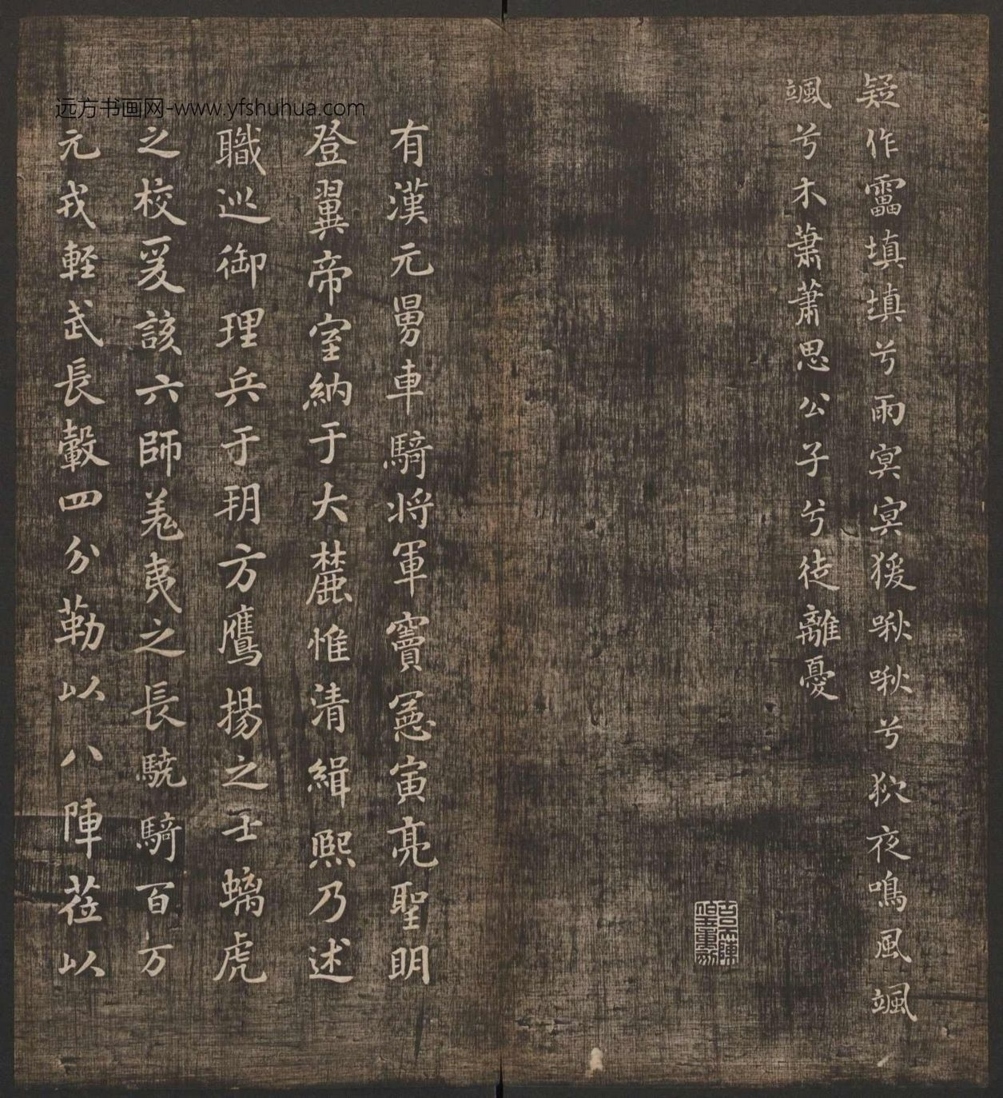 疑作靁填填兮雨㝠㝠猨啾啾兮狖夜鳴風颯
颯兮木蕭蕭思公子兮徒離憂
有漢元舅車騎将軍竇憲寅亮聖明
登翼帝室納于大麓惟清緝熙乃述
職巡御理兵于朔方鷹揚之士螭虎
之校爰該六師羌夷之長驍騎百万
元戎輕武長轂四分勒以八陣莅以
远方书画网-www.yfshuhua.com